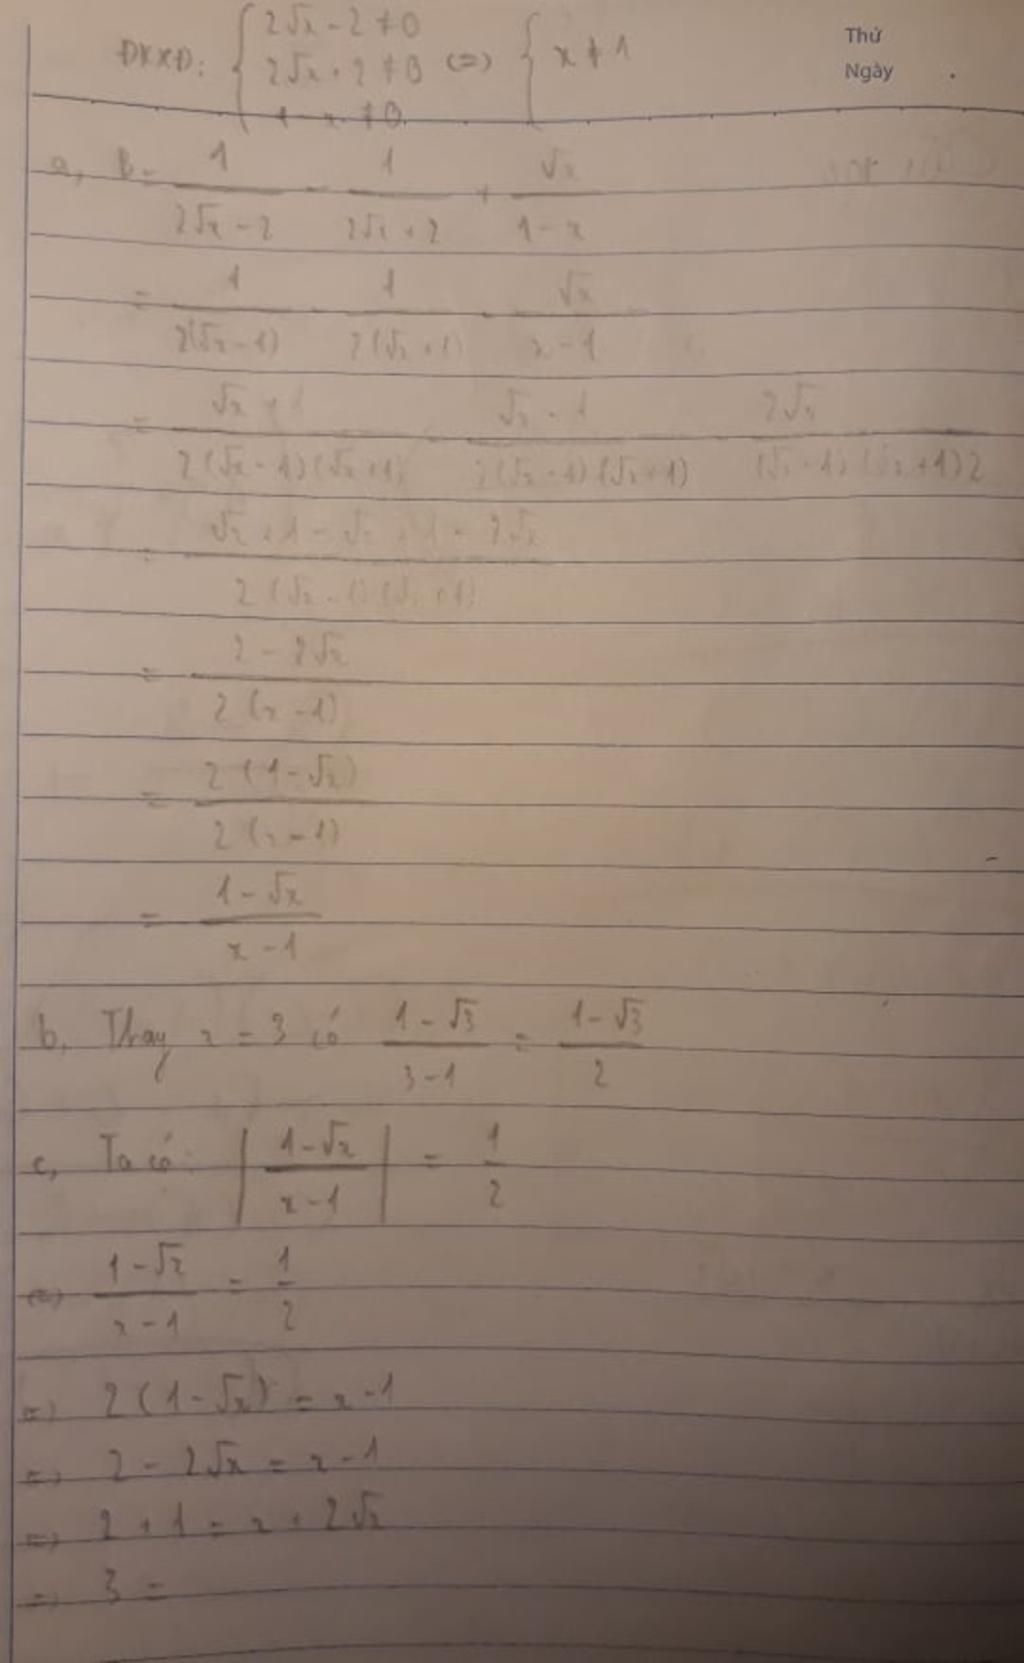 Thứ
Ngày
ĐKXĐ: { 2√x - 2 ≠ 0
2√x + 2 ≠ 0 (=) { x ≠ 1
1 - x ≠ 0
a, B = 1/(2√x - 2) - 1/(2√x + 2) + √x/(1 - x)
= 1/(2(√x - 1)) - 1/(2(√x + 1)) - √x/(x - 1)
= (√x + 1)/(2(√x - 1)(√x + 1)) - (√x - 1)/(2(√x - 1)(√x + 1)) - 2√x/((√x - 1)(√x + 1)2)
= (√x + 1 - √x + 1 - 2√x)/(2(√x - 1)(√x + 1))
= (2 - 2√x)/(2(x - 1))
= (2(1 - √x))/(2(x - 1))
= (1 - √x)/(x - 1)
b, Thay x = 3 có (1 - √3)/(3 - 1) = (1 - √3)/2
c, Ta có: |(1 - √x)/(x - 1)| = 1/2
(=) (1 - √x)/(x - 1) = 1/2
=) 2(1 - √x) = x - 1
=) 2 - 2√x = x - 1
=) 2 + 1 = x + 2√x
=) 3 =